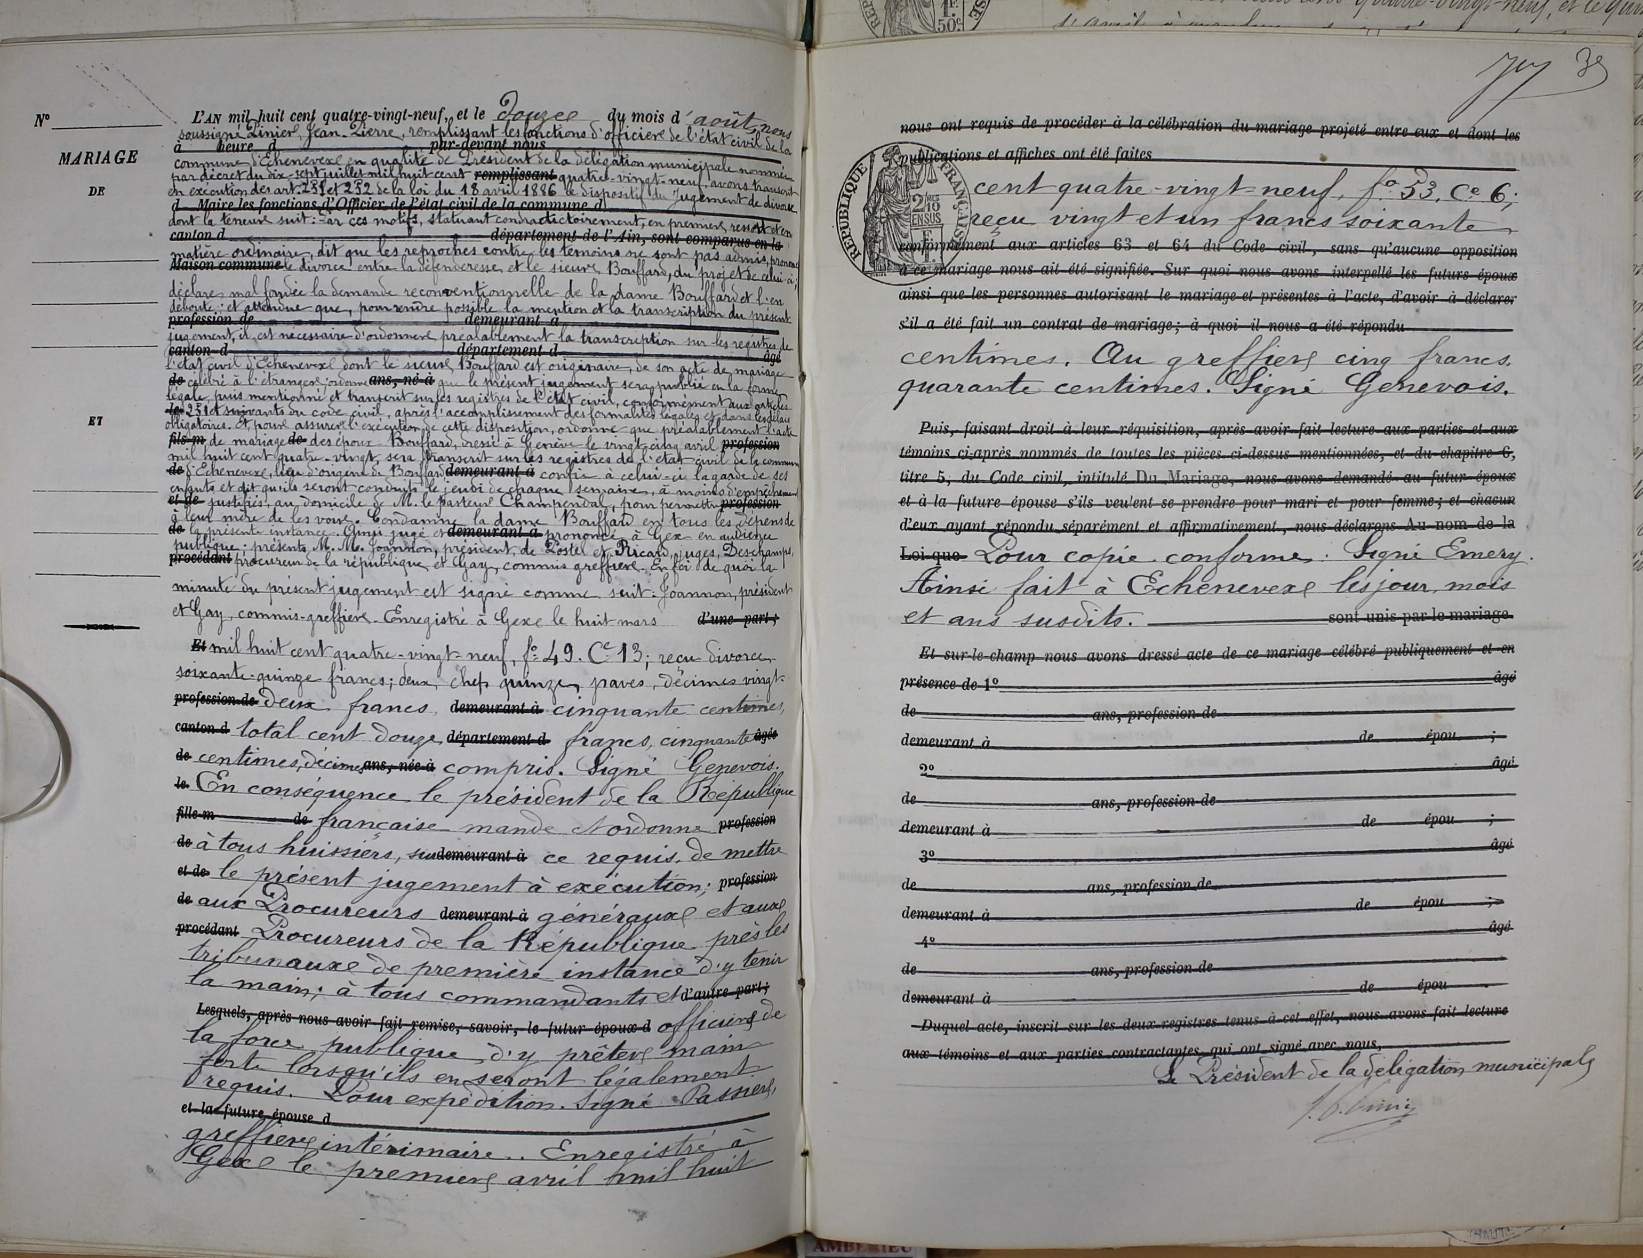 N°
MARIAGE
DE
ET
L'AN mil huit cent quatre-vingt-neuf, et le douze du mois d'août, nous
soussigné Pinier, Jean-Pierre, remplissant les fonctions d'officier de l'état civil de la
à heure d par-devant nous
commune d'Echenevex en qualité de Président de la délégation municipale nommée
par décret du dix-sept juillet mil huit cent remplissant quatre-vingt-neuf, avons transcrit
en exécution des art. 251 et 252 de la loi du 18 avril 1886 le dispositif du Jugement de divorce
d Maire les fonctions d'Officier de l'état civil de la commune d
dont la teneur suit: Par ces motifs, statuant contradictoirement, en premier ressort et en
canton d département de l'Ain, sont comparus en la
matière ordinaire, dit que les reproches contre les témoins ne sont pas admis, prononce
Maison commune le divorce entre la défenderesse et le sieur Bouffard, du projet de celui-ci,
déclare mal fondée la demande reconventionnelle de la dame Bouffard et l'en
déboute; et attendu que, pour rendre possible la mention et la transcription du présent
profession de demeurant à
jugement, il est nécessaire d'ordonner préalablement la transcription sur les registres de
canton d département d âgé
l'état civil d'Echenevex dont le sieur Bouffard est originaire, de son acte de mariage
de célébré à l'étranger, ordonne ans, né à que le présent jugement sera publié en la forme
légale, puis mentionné et transcrit sur les registres de l'état civil, conformément aux articles
le 251 et suivants du code civil, après l'accomplissement des formalités légales et dans les délais
obligatoires. Et, pour assurer l'exécution de cette disposition, ordonne que préalablement l'acte
fils m de mariage de des époux Bouffard, dressé à Genève le vingt-cinq avril profession
mil huit cent quatre-vingt, sera transcrit sur les registres de l'état civil de la commune
de d'Echenevex, lieu d'origine de Bouffard demeurant à confie à celui-ci la garde de ses
enfants et dit qu'ils seront conduits le jeudi de chaque semaine, à moins d'empêchement
et de justifiés, au domicile de M. le Pasteur Champendal, pour permettre profession
à leur mère de les voir. Condamne la dame Bouffard en tous les dépens de
de la présente instance. Ainsi jugé et demeurant à prononcé à Gex en audience
publique: présents, M. M. Joannon, président, de Postel et Ricard, juges, Deschamps,
procédant procureur de la république, et Gay, commis greffier. En foi de quoi la
minute du présent jugement est signé comme suit: Joannon, président
et Gay, commis-greffier. Enregistré à Gex le huit mars d'une part;
Et mil huit cent quatre-vingt-neuf, f° 49. Ce 13; reçu divorce
soixante-quinze francs; deux chefs quinze, paves, décimes vingt-
profession de deux francs demeurant à cinquante centimes,
canton d total cent douze département d francs, cinquante âgée
de centimes, décimes ans, née à compris. Signé Genevois.
le En conséquence le président de la République
fille m de française mande et ordonne profession
de à tous huissiers, sur demeurant à ce requis, de mettre
et de le présent jugement à exécution; profession
de aux Procureurs demeurant à généraux et aux
procédant Procureurs de la République près les
tribunaux de première instance d'y tenir
la main; à tous commandants et d'autre part;
Lesquels, après nous avoir fait remise, savoir, le futur époux d officiers de
la force publique d'y prêter main
forte lorsqu'ils en seront légalement
requis. Pour expédition. Signé
et la future épouse d
greffier intérimaire.. Enregistré à
Gex le premier avril mil huit
nous ont requis de procéder à la célébration du mariage projeté entre eux et dont les
publications et affiches ont été faites
RÉPUBLIQUE FRANÇAISE
cent quatre-vingt-neuf, f° 53. Ce 6;
reçu vingt et un francs soixante
conformément aux articles 63 et 64 du Code civil, sans qu'aucune opposition
à ce mariage nous ait été signifiée. Sur quoi nous avons interpellé les futurs époux
ainsi que les personnes autorisant le mariage et présentes à l'acte, d'avoir à déclarer
s'il a été fait un contrat de mariage; à quoi il nous a été répondu
centimes. Au greffier cinq francs
quarante centimes. Signé Genevois.
Puis, faisant droit à leur réquisition, après avoir fait lecture aux parties et aux
témoins ci-après nommés de toutes les pièces ci-dessus mentionnées, et du chapitre 6,
titre 5, du Code civil, intitulé Du Mariage, nous avons demandé au futur époux
et à la future épouse s'ils veulent se prendre pour mari et pour femme; et chacun
d'eux ayant répondu séparément et affirmativement, nous déclarons Au nom de la
Loi que Pour copie conforme: Signé Emery.
Ainsi fait à Echenevex les jour, mois
et ans susdits. sont unis par le mariage
Et sur-le-champ nous avons dressé acte de ce mariage célébré publiquement et en
présence de 1° âgé
de ans, profession de
demeurant à de épou ;
2° âgé
de ans, profession de
demeurant à de épou ;
3° âgé
de ans, profession de
demeurant à de épou ;
4° âgé
de ans, profession de
demeurant à de épou
Duquel acte, inscrit sur les deux registres tenus à cet effet, nous avons fait lecture
aux témoins et aux parties contractantes qui ont signé avec nous,
Le Président de la délégation municipale